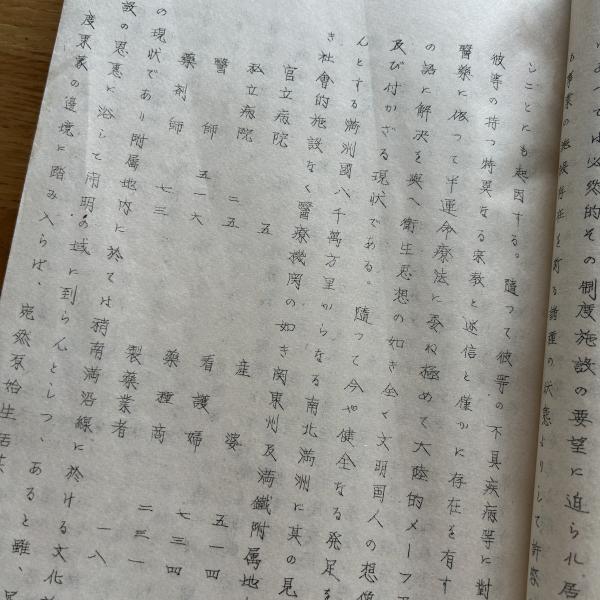 よつては必然的その制度施設の要望に迫られ居
しことにも起因する。隨つて彼等の不具疾病等に對
彼等の持つ特異なる宗教と迷信と僅かに存在を有す
醫藥に依つて半運命療法に委ね極めて大陸的メーフ
の話に解決を與へ衛生思想の如き全く文明国人の想像
及び付かざる現状である。隨つて今や健全なる発足を
んとする満洲國八千萬方里からなる南北満洲に其の見
き社會的施設なく醫療機関の如き関東州及満鐵附属地
官立病院 五 産婆 五一四
私立病院 二五 看護婦 七三四
醫師 五一六 藥種商 二三一
藥剤師 七三 製藥業者 一八
の現状であり附属地内に於ては稍南満沿線に於ける文化
設の恩恵に浴して開明の域に到らんとしつゝあると雖、
度東蒙の邊境に踏み入らば、宛然原始生活